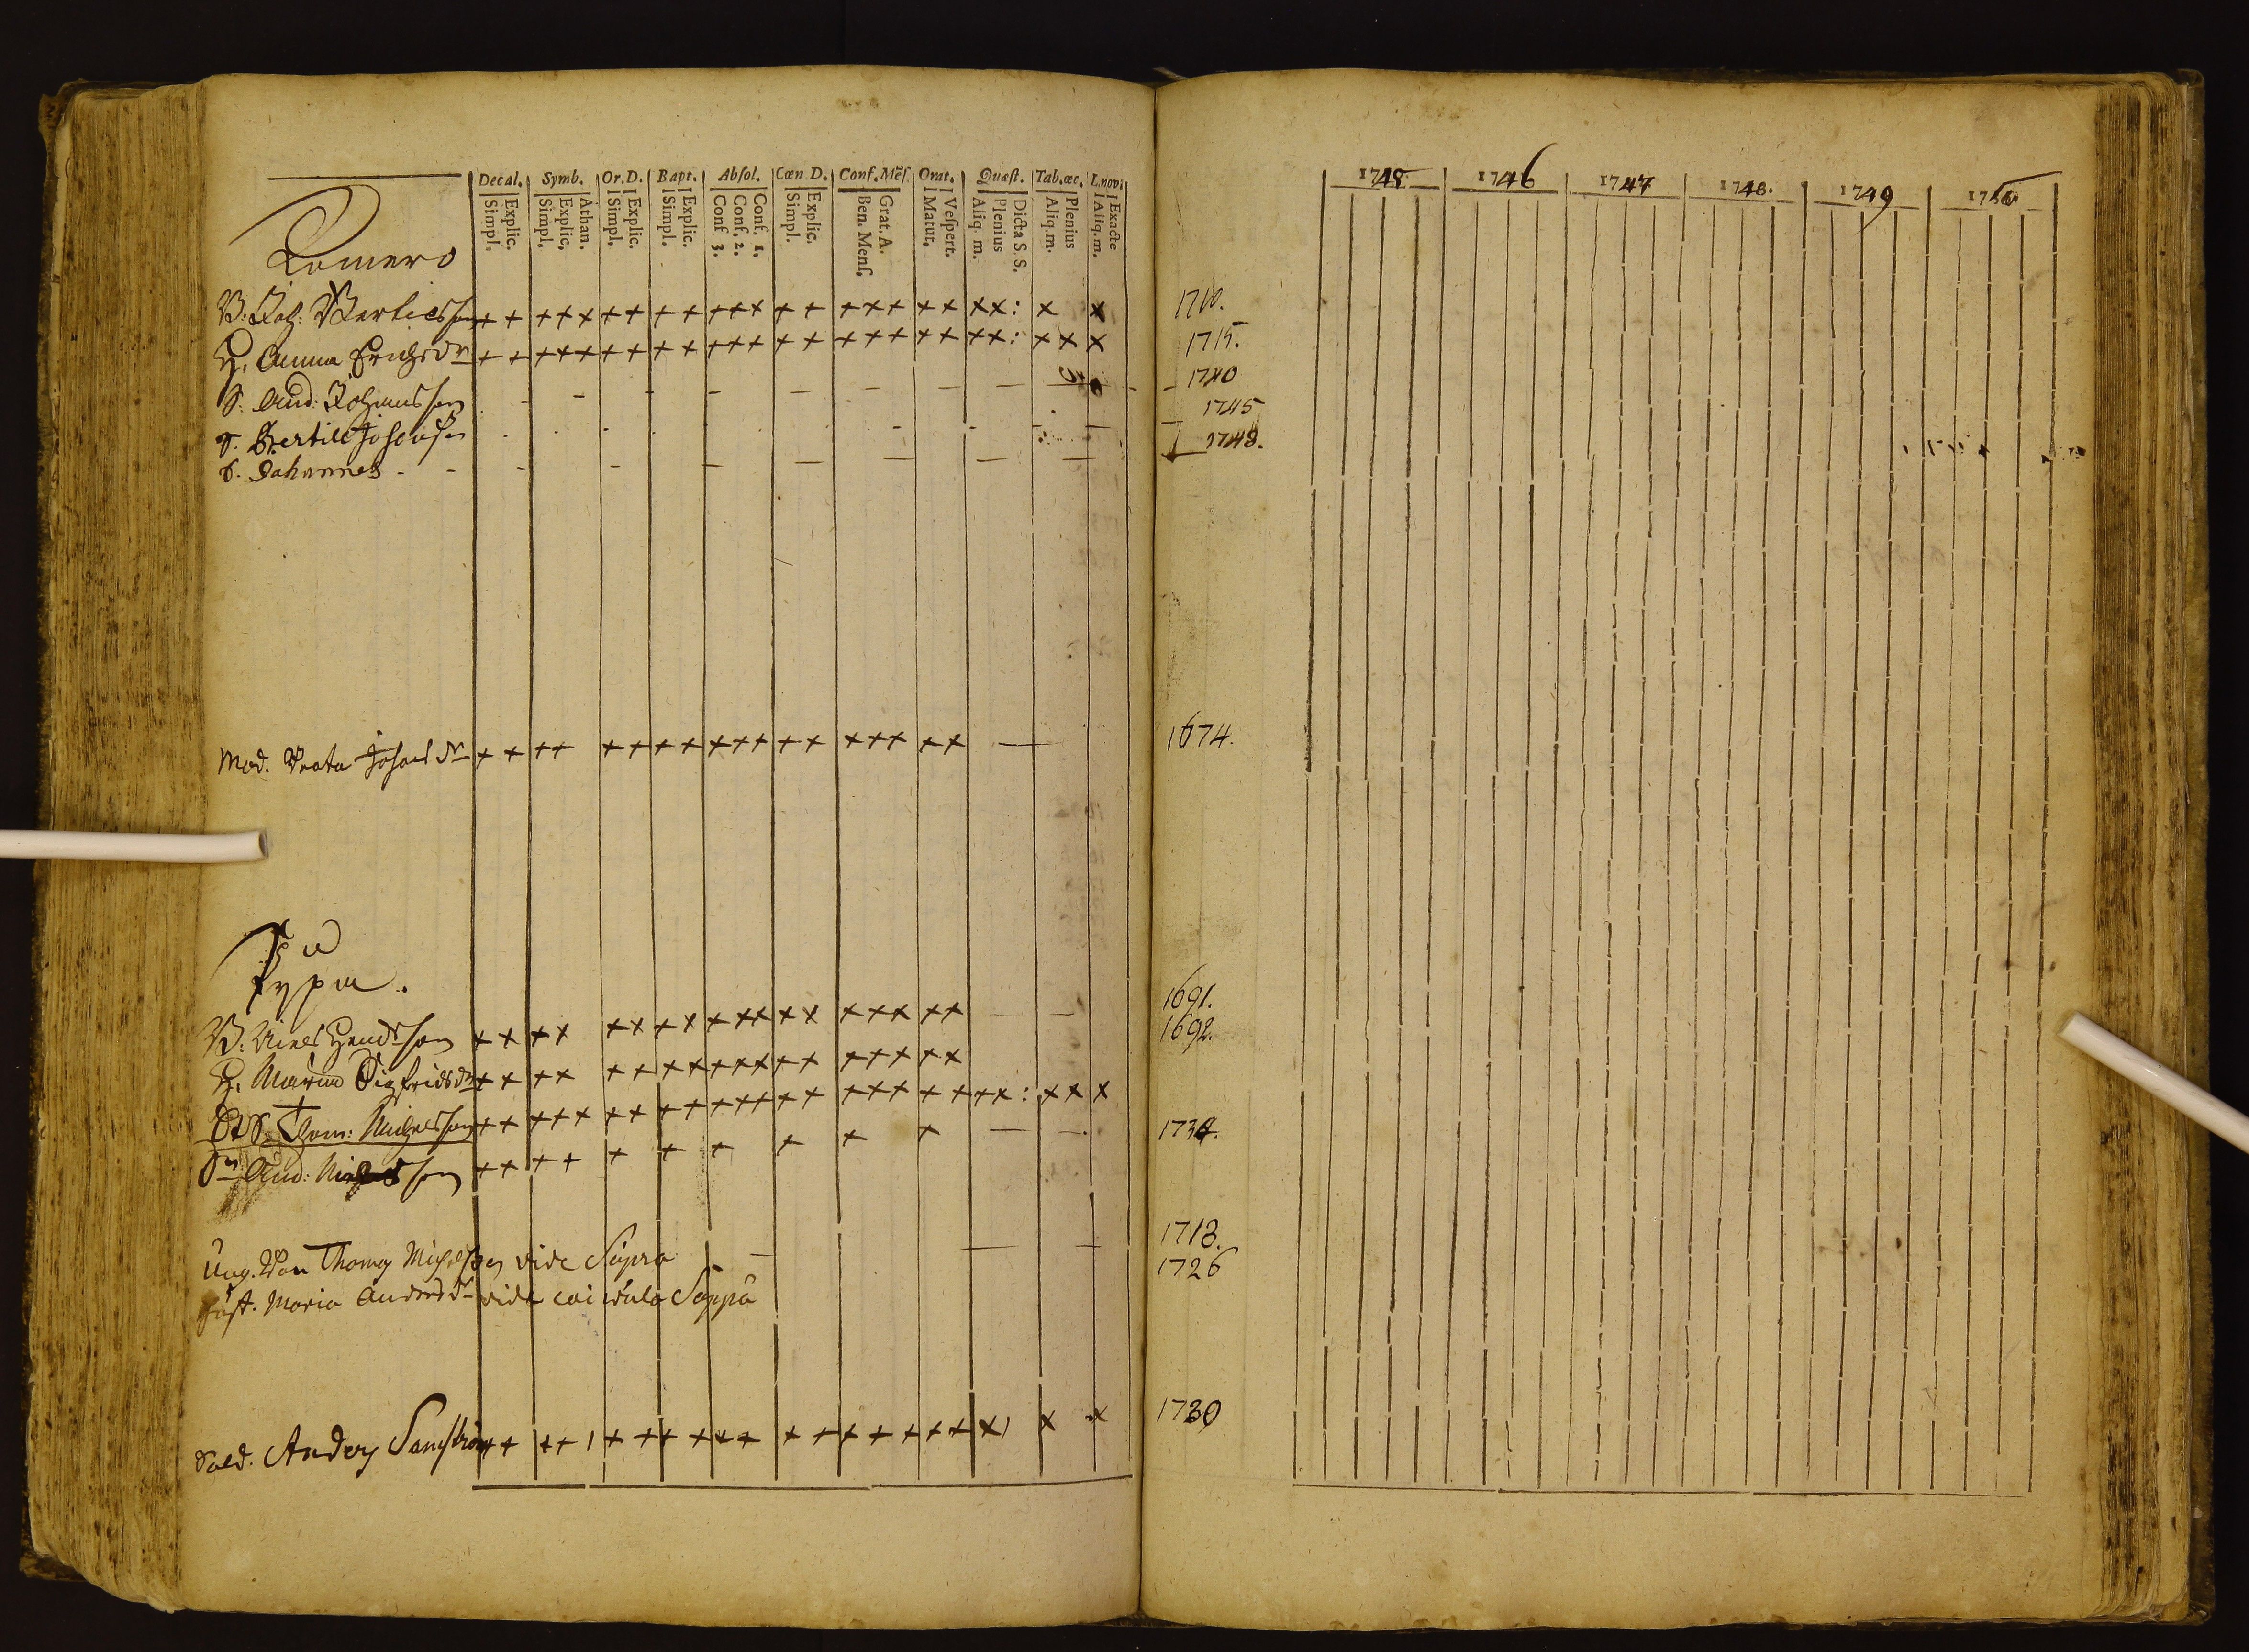 Decal. Symb. Or. D. Bapt. Absol. Cœn. D. Conf. Mēs. Orat. Quæst. Tab. œc. L. novi
Explic. Simpl. Athan. Explic. Simpl. Explic. Simpl. Explic. Simpl. Conf. 1. Conf. 2. Conf 3. Explic. Simpl. Grat. A. Ben. Mens. Vespert. Matut. Dicta S. S. Plenius Aliq. m. Plenius Aliq. m. Exacte Aliq. m.
1745 1746 1747 1748. 1749 1750
Romero
B. Joh: Bertilsson ++ +++ ++ ++ +++ ++ +++ ++ xx: x x 1710.
H. Anna Erichsdr ++ +++ ++ ++ +++ ++ +++ ++ xx: xx x 1715.
S. And: Johansson 1740
S. Bertill Johansson 1745
S. Johannes 1748.
Mod. Johansdr ++ ++ ++ ++ +++ ++ +++ ++ 1674.
Pypia.
B: Hendrsson ++ ++ ++ ++ +++ ++ +++ ++ 1691.
H. Maria Sigfridsdr ++ ++ ++ ++ +++ ++ +++ ++ 1692.
S. Thom: Michelsson ++ +++ ++ ++ +++ ++ +++ ++ ++: xxx x
And: ++ ++ + + + + + + 1734.
Thomas Michelsson vide Supra 1718.
Maria Andersdr vide Sappu 1726
Sold. Anders Sandström 1730